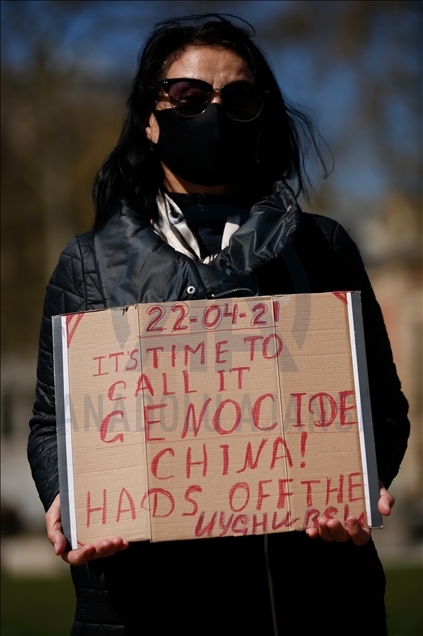 22-04-21
IT'S TIME TO
CALL IT
GENOCIDE
CHINA!
HADS OFF THE
UYGHURS!
ANADOLU